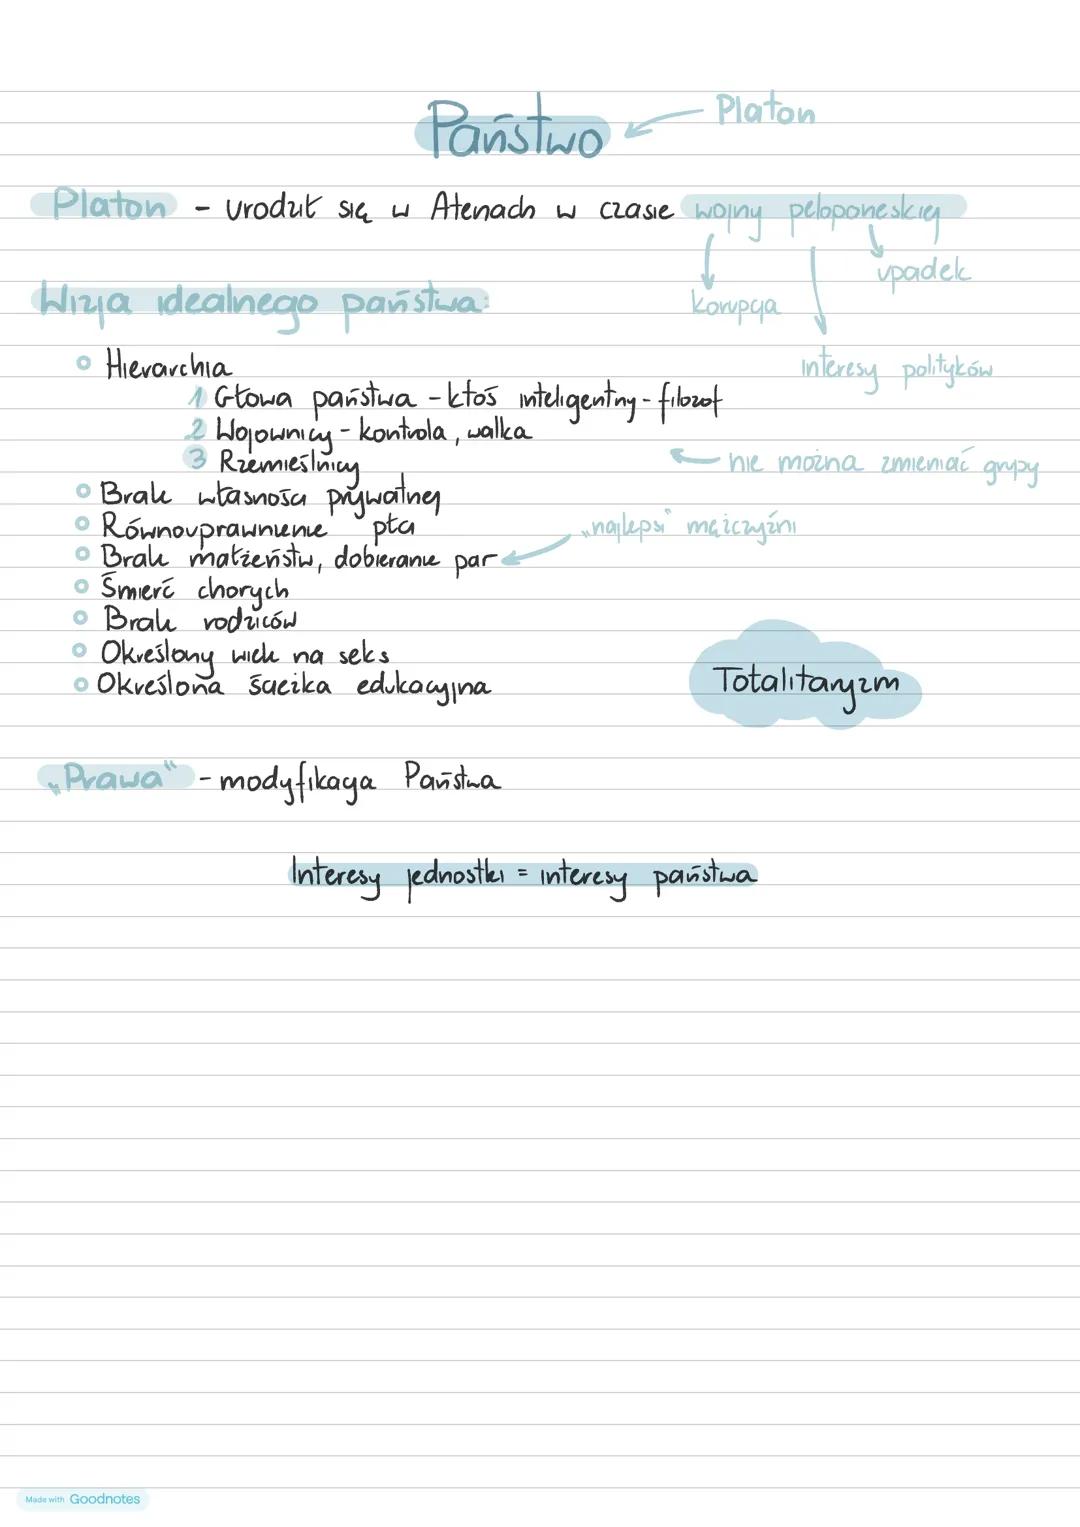 Państwo ← Platon
Platon - urodził się w Atenach w czasie wojny peloponeskiej
upadek
korupcja
interesy polityków
Wizja idealnego państwa:
Hierarchia
1 Głowa państwa - ktoś inteligentny - filozof
2 Wojownicy - kontrola, walka
3 Rzemieślnicy
← nie można zmieniać grupy
Brak własności prywatnej
Równouprawnienie płci
"najlepsi" mężczyźni
Brak małżeństw, dobieranie par
Śmierć chorych
Brak rodziców
Określony wiek na seks
Określona ścieżka edukacyjna
Totalitaryzm
„Prawa" - modyfikacja Państwa
Interesy jednostki = interesy państwa
Made with Goodnotes